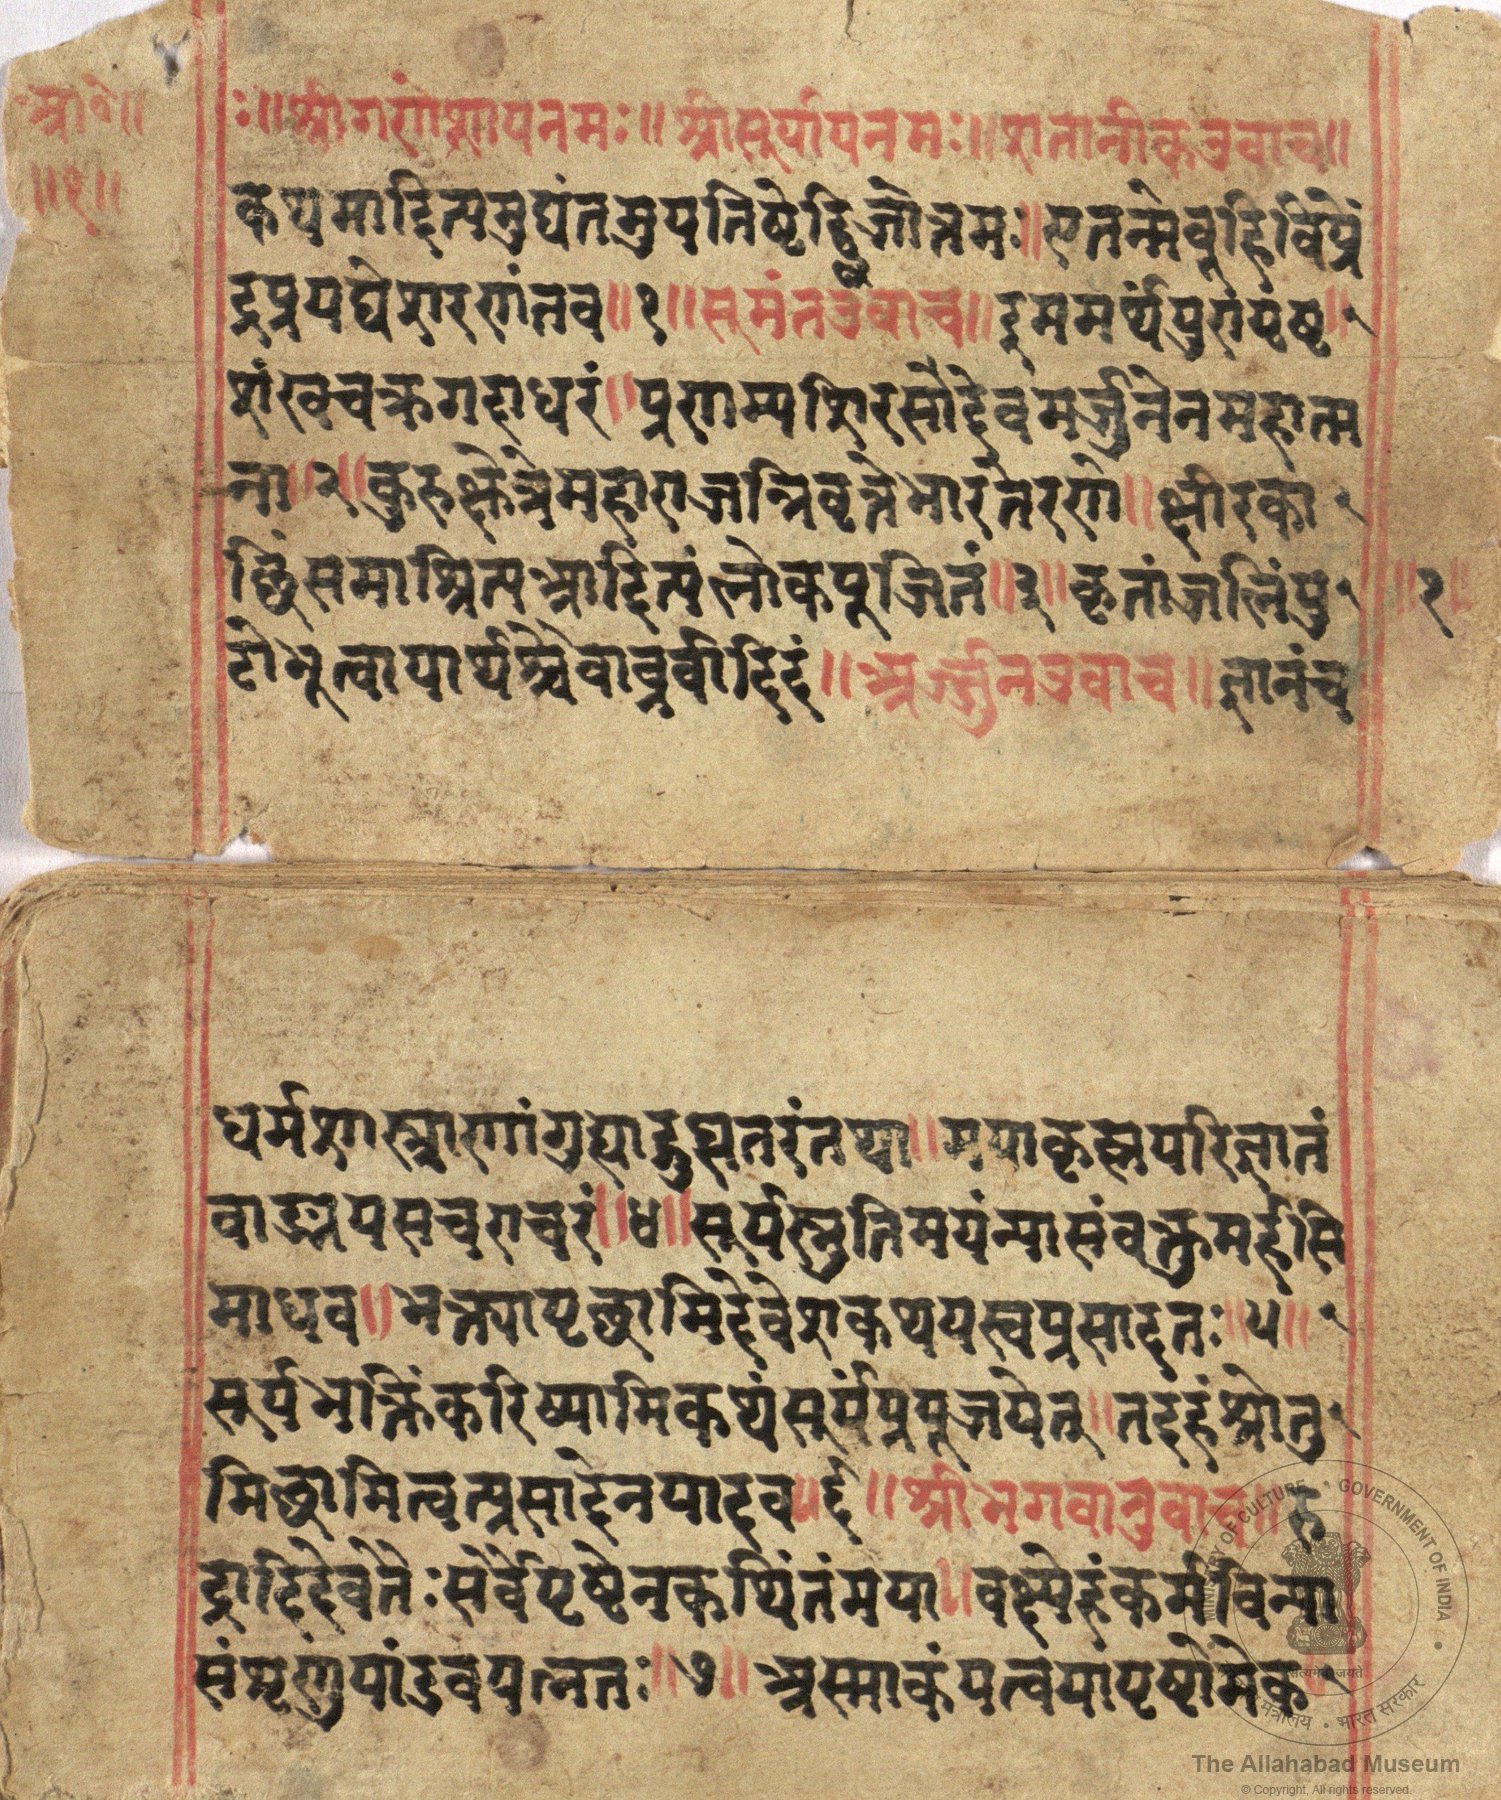 आ०ह॥
॥१॥
ः॥श्रीगणेशायनमः॥श्रीसूर्यायनमः॥शतानीकउवाच॥
कथमादित्यमुद्यंतमुपतिष्ठेद्द्विजोत्तमः॥एतन्मेब्रूहिविप्रें
द्रप्रपद्येशरणंतव॥१॥सुमंतउवाच॥इममर्थंपुरापृष्ठ॥
शंखचक्रगदाधरं॥प्रणम्यशिरसादेवमर्जुनेनमहात्म
ना॥२॥कुरुक्षेत्रेमहाराजन्निवृत्तेभारतेरणे॥क्षीरका
छिंसमाश्रित्यआदित्यंलोकपूजितं॥३॥कृतांजलिंपु
टोभूत्वापार्थश्चैवाब्रवीदिदं॥अर्ज्जुनउवाच॥ज्ञानंच
॥१॥
धर्मशास्त्राणांगुह्याद्गुह्यतरंतथा॥मयाकृष्नपरिज्ञातं
वाङ्मयसचराचरं॥४॥सूर्यस्तुतिमयंन्यासंवक्तुमर्हसि
माधव॥भक्त्यापृछामिदेवेशकथयस्वप्रसादतः॥५॥
सूर्यभक्तिंकरिष्यामिकथंसूर्यंप्रपूजयेत्॥तदहंश्रोतु
मिछामित्वत्प्रसादेनयादव॥६॥श्रीभगवानुवाच॥रु
द्रादिदेवतैःसर्वैपृष्टेनकथितंमया॥वक्ष्येहंकर्मविन्या
संशृणुपांडवयत्नतः॥७॥अस्माकंयत्वयापृष्टोमेक
MINISTRY OF CULTURE • GOVERNMENT OF INDIA
सत्यमेव जयते
मंत्रालय • भारत सरकार
The Allahabad Museum
© Copyright, All rights reserved.